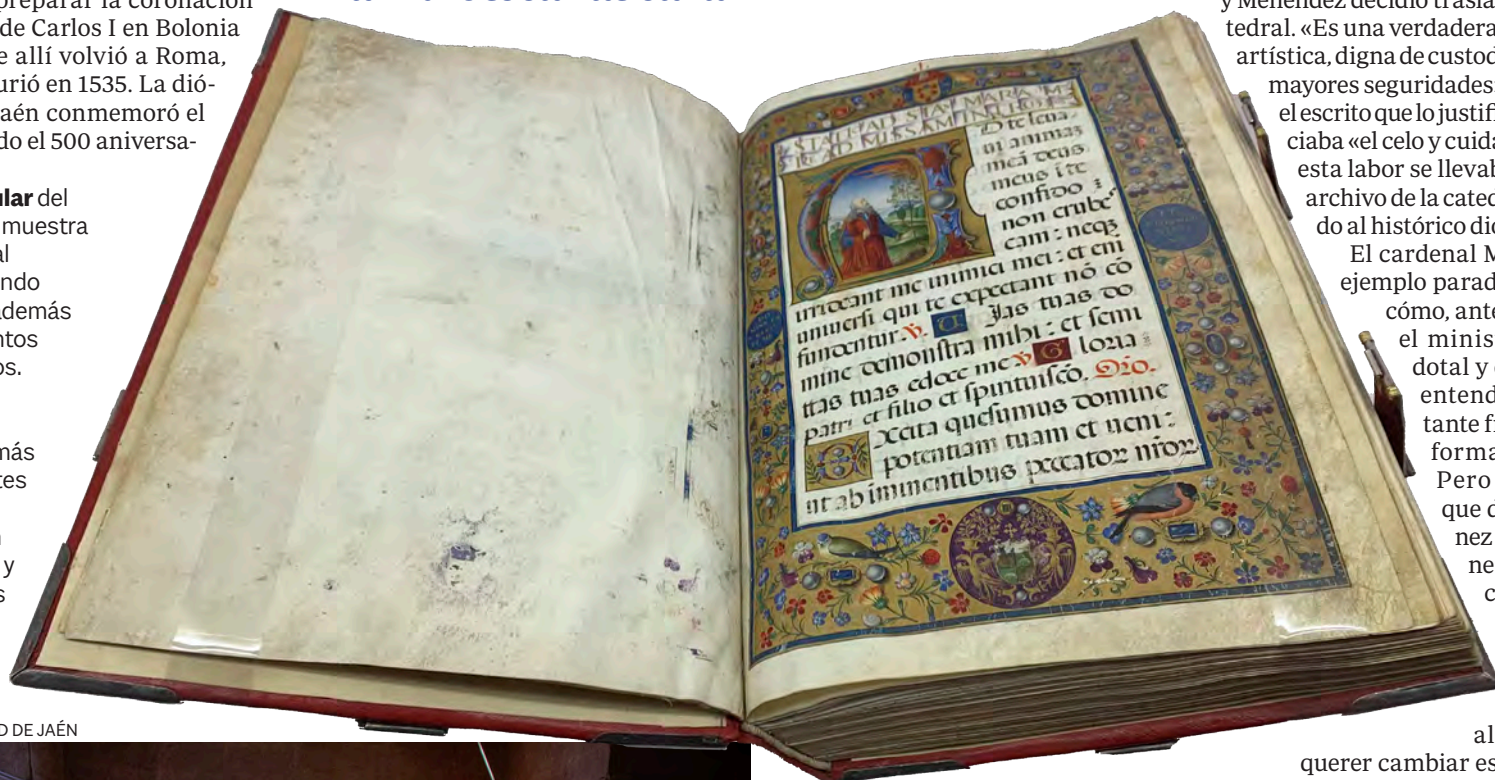 preparar la coronación
de Carlos I en Bolonia
e allí volvió a Roma,
urió en 1535. La dió-
aén conmemoró el
do el 500 aniversa-
lar del
muestra
al
ndo
además
ntos
os.
más
tes
y
s
D DE JAÉN
D te leua
ui animaz
meā deus
meus i te
confido :
non erube
cam : neqz
irrideant me inimici mei : et eni
uniuersi qui te expectant nō cō
fundentur. V. U Ias tuas do
mine demonstra mihi : et semi
ttas tuas edoce me V. G loria
patri et filio et spirituiscō. Oro.
E Xcita quesumus domine
potentiam tuam et ueni :
ut ab iminentibus peccatoz nr̄oz
y Menéndez decidió trasla
tedral. «Es una verdadera
artística, digna de custod
mayores seguridades:
el escrito que lo justifi
ciaba «el celo y cuida
esta labor se llevab
archivo de la cated
do al histórico dio
El cardenal M
ejemplo parad
cómo, ante
el minis
dotal y
entend
tante f
forma
Pero
que d
nez
ne
c
al
querer cambiar es